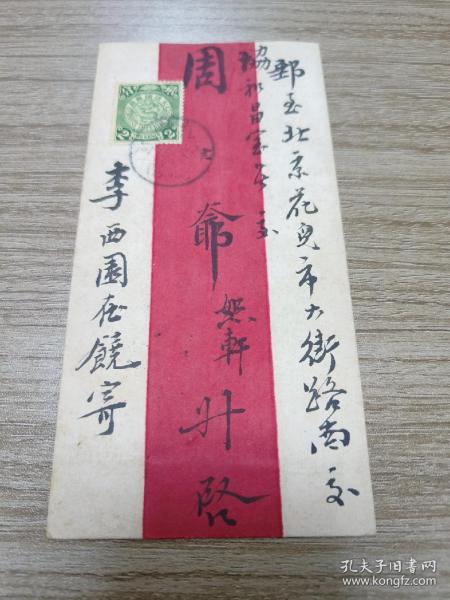 郵至北京花兒市大街路南交
協和昌寶号交
周
爺
恕軒 升啓
李西園在饒寄
孔夫子旧书网
www.kongfz.com